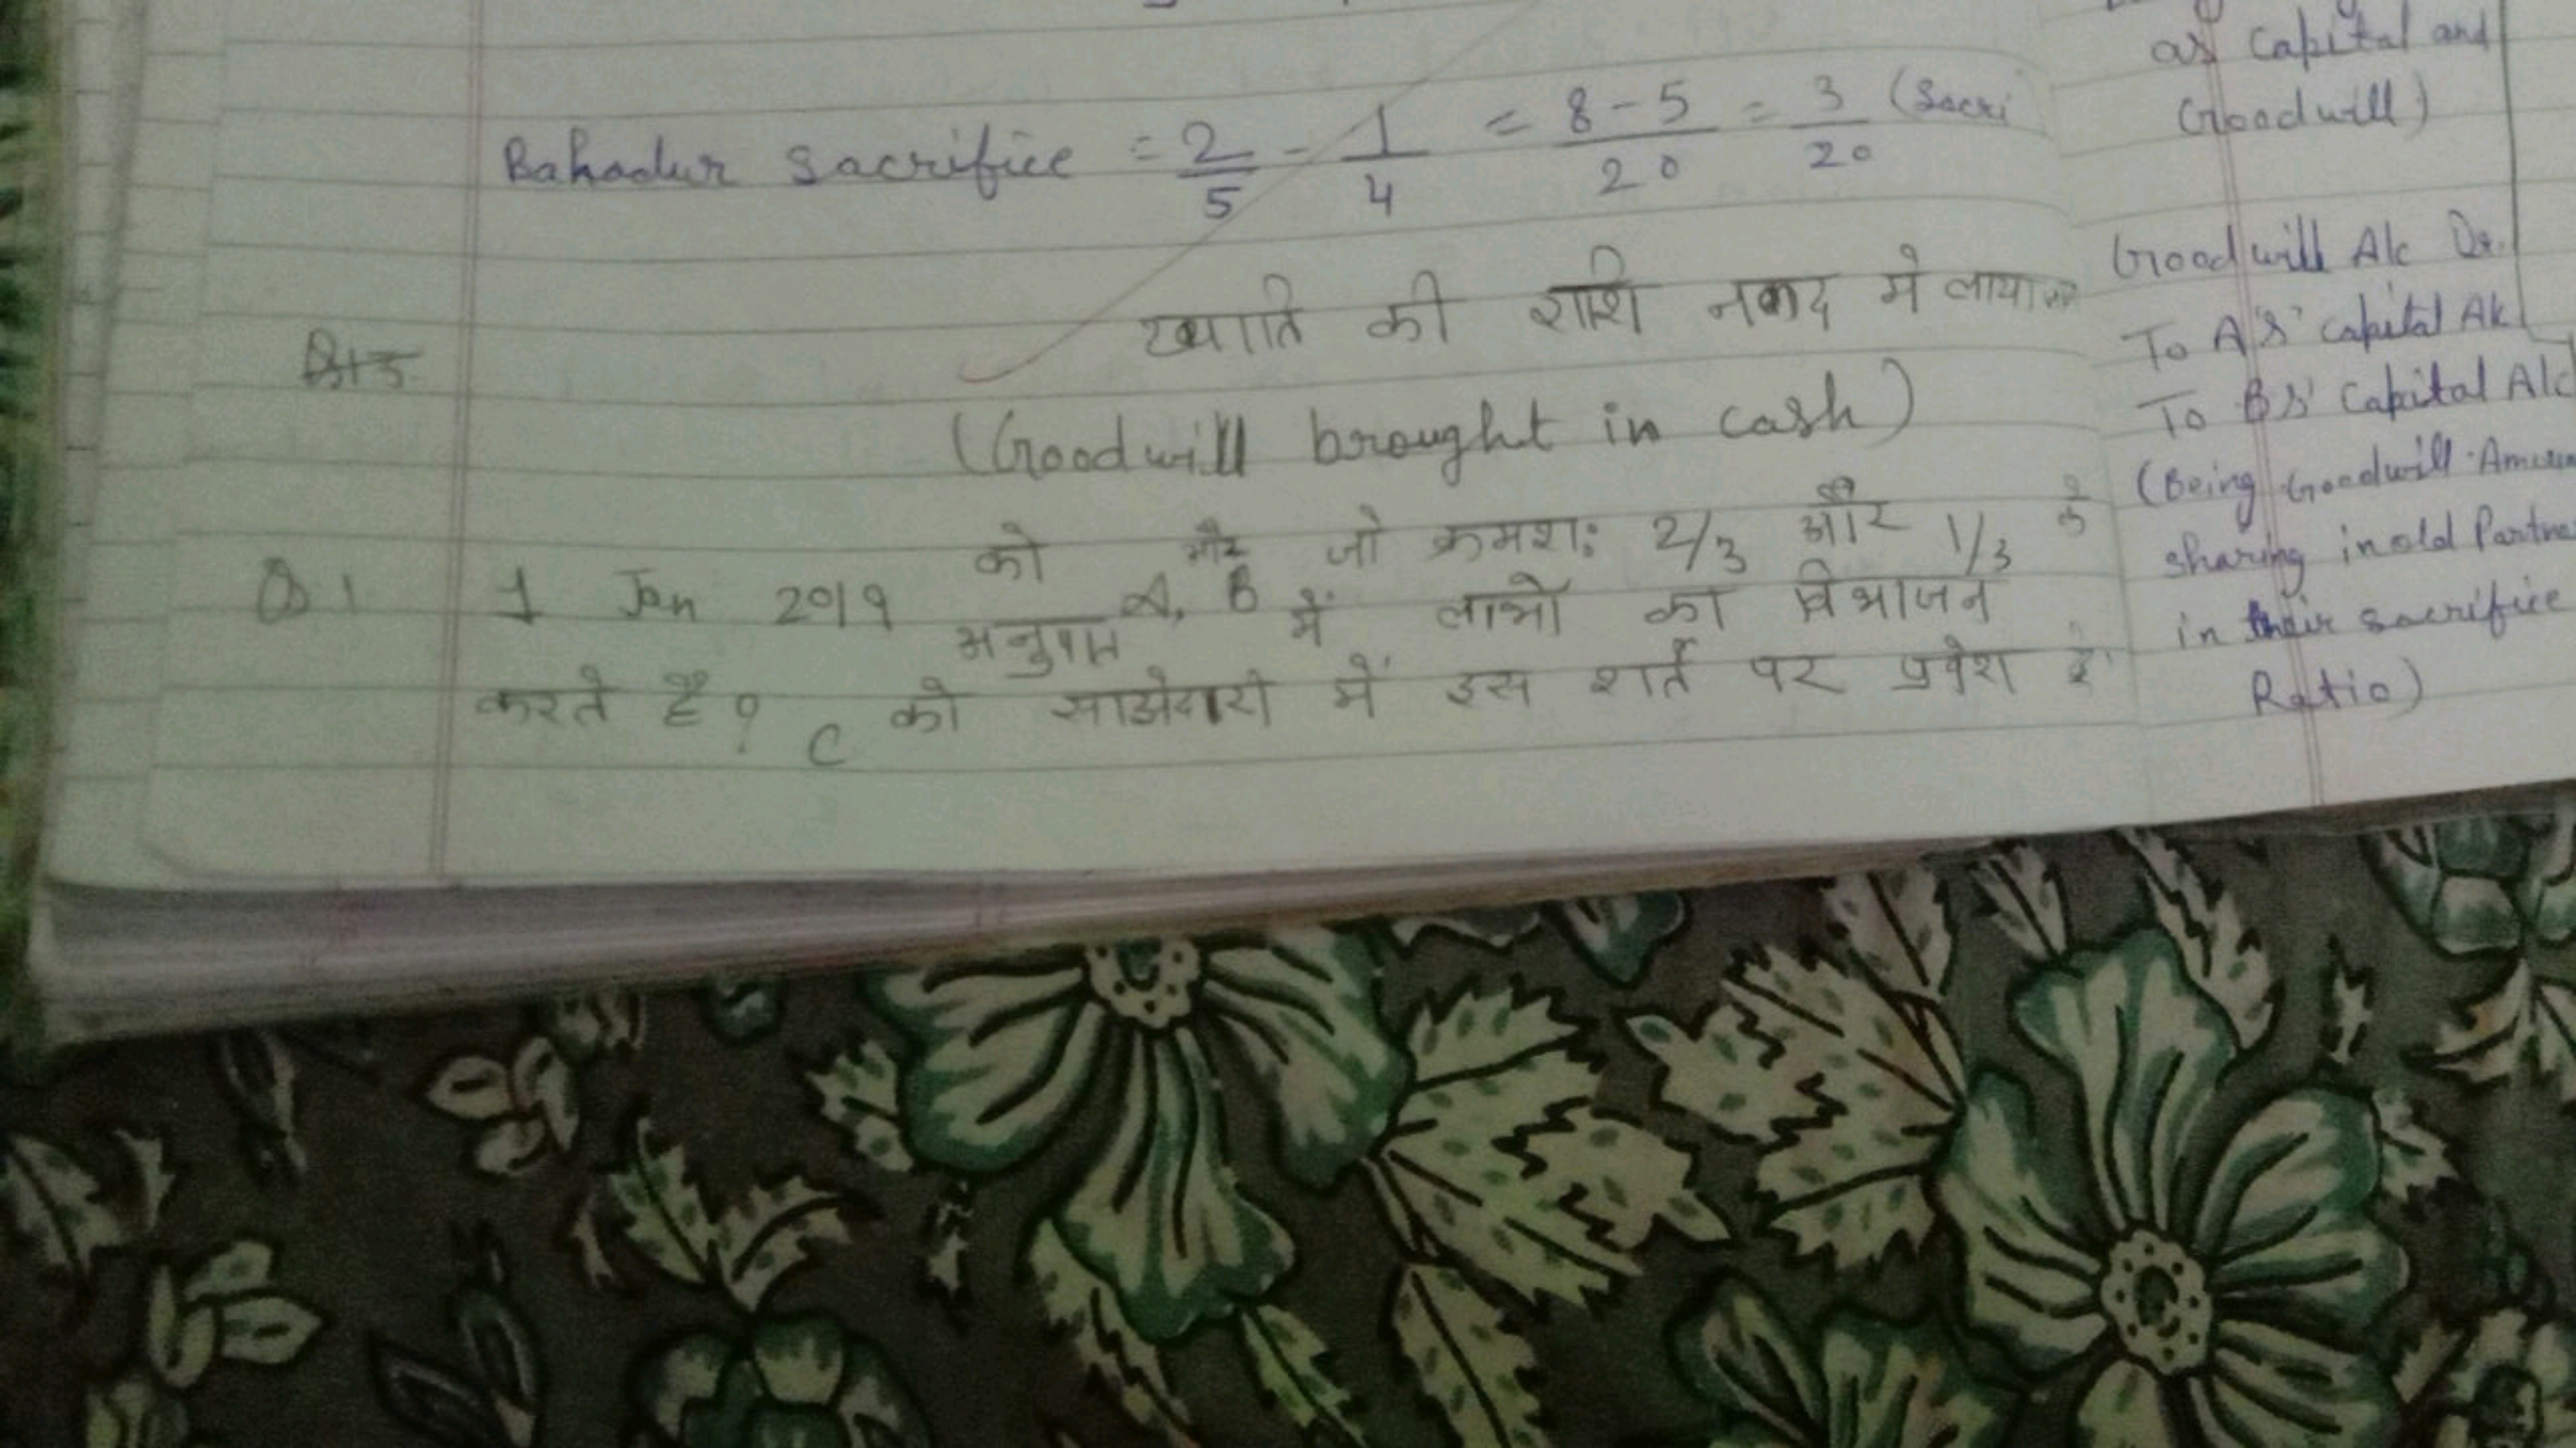 Bahadur sacrifice = 2/5 - 1/4 = 8-5/20 = 3/20 (Sacri
ख्याति की राशि नकद मे लाया
(Goodwill brought in cash)
Q 1 1 Jan 2019 को A, और B जो क्रमश: 2/3 और 1/3 के
अनुपात में लाभों का विभाजन
करते हैं? C को साझेदारी में इस शर्त पर प्रवेश
as Capital and
Goodwill)
Goodwill A/c Dr.
To A'S' capital A/c
To B'S' Capital A/c
(Being Goodwill
sharing in old
in their sacrifice
Ratio)